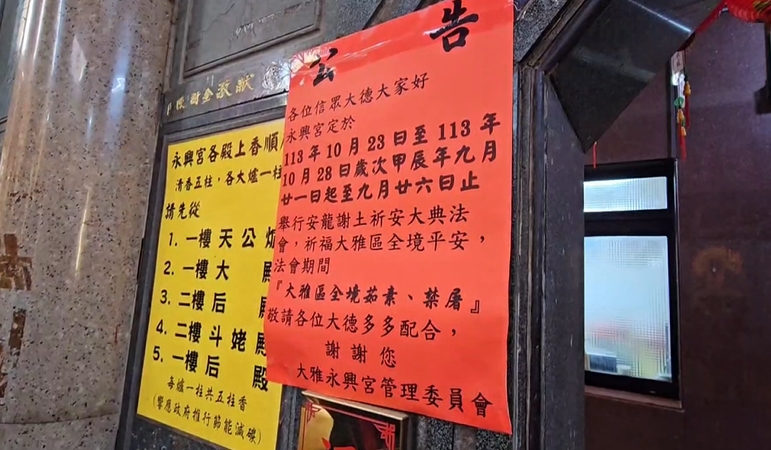 獻敬
永興宮各殿上香順
清香五柱，各大爐一柱
請先從
1. 一樓天公爐
2. 一樓大 殿
3. 二樓后 殿
4. 二樓斗姥殿
5. 一樓后 殿
每爐一柱共五柱香
(響應政府推行節能減碳)
公告
各位信眾大德大家好
永興宮定於
113 年 10 月 23 日至 113 年
10 月 28 日歲次甲辰年九月
廿一日起至九月廿六日止
舉行安龍謝土祈安大典法
會，祈福大雅區全境平安，
法會期間
『大雅區全境茹素、禁屠』
敬請各位大德多多配合，
謝謝您
大雅永興宮管理委員會